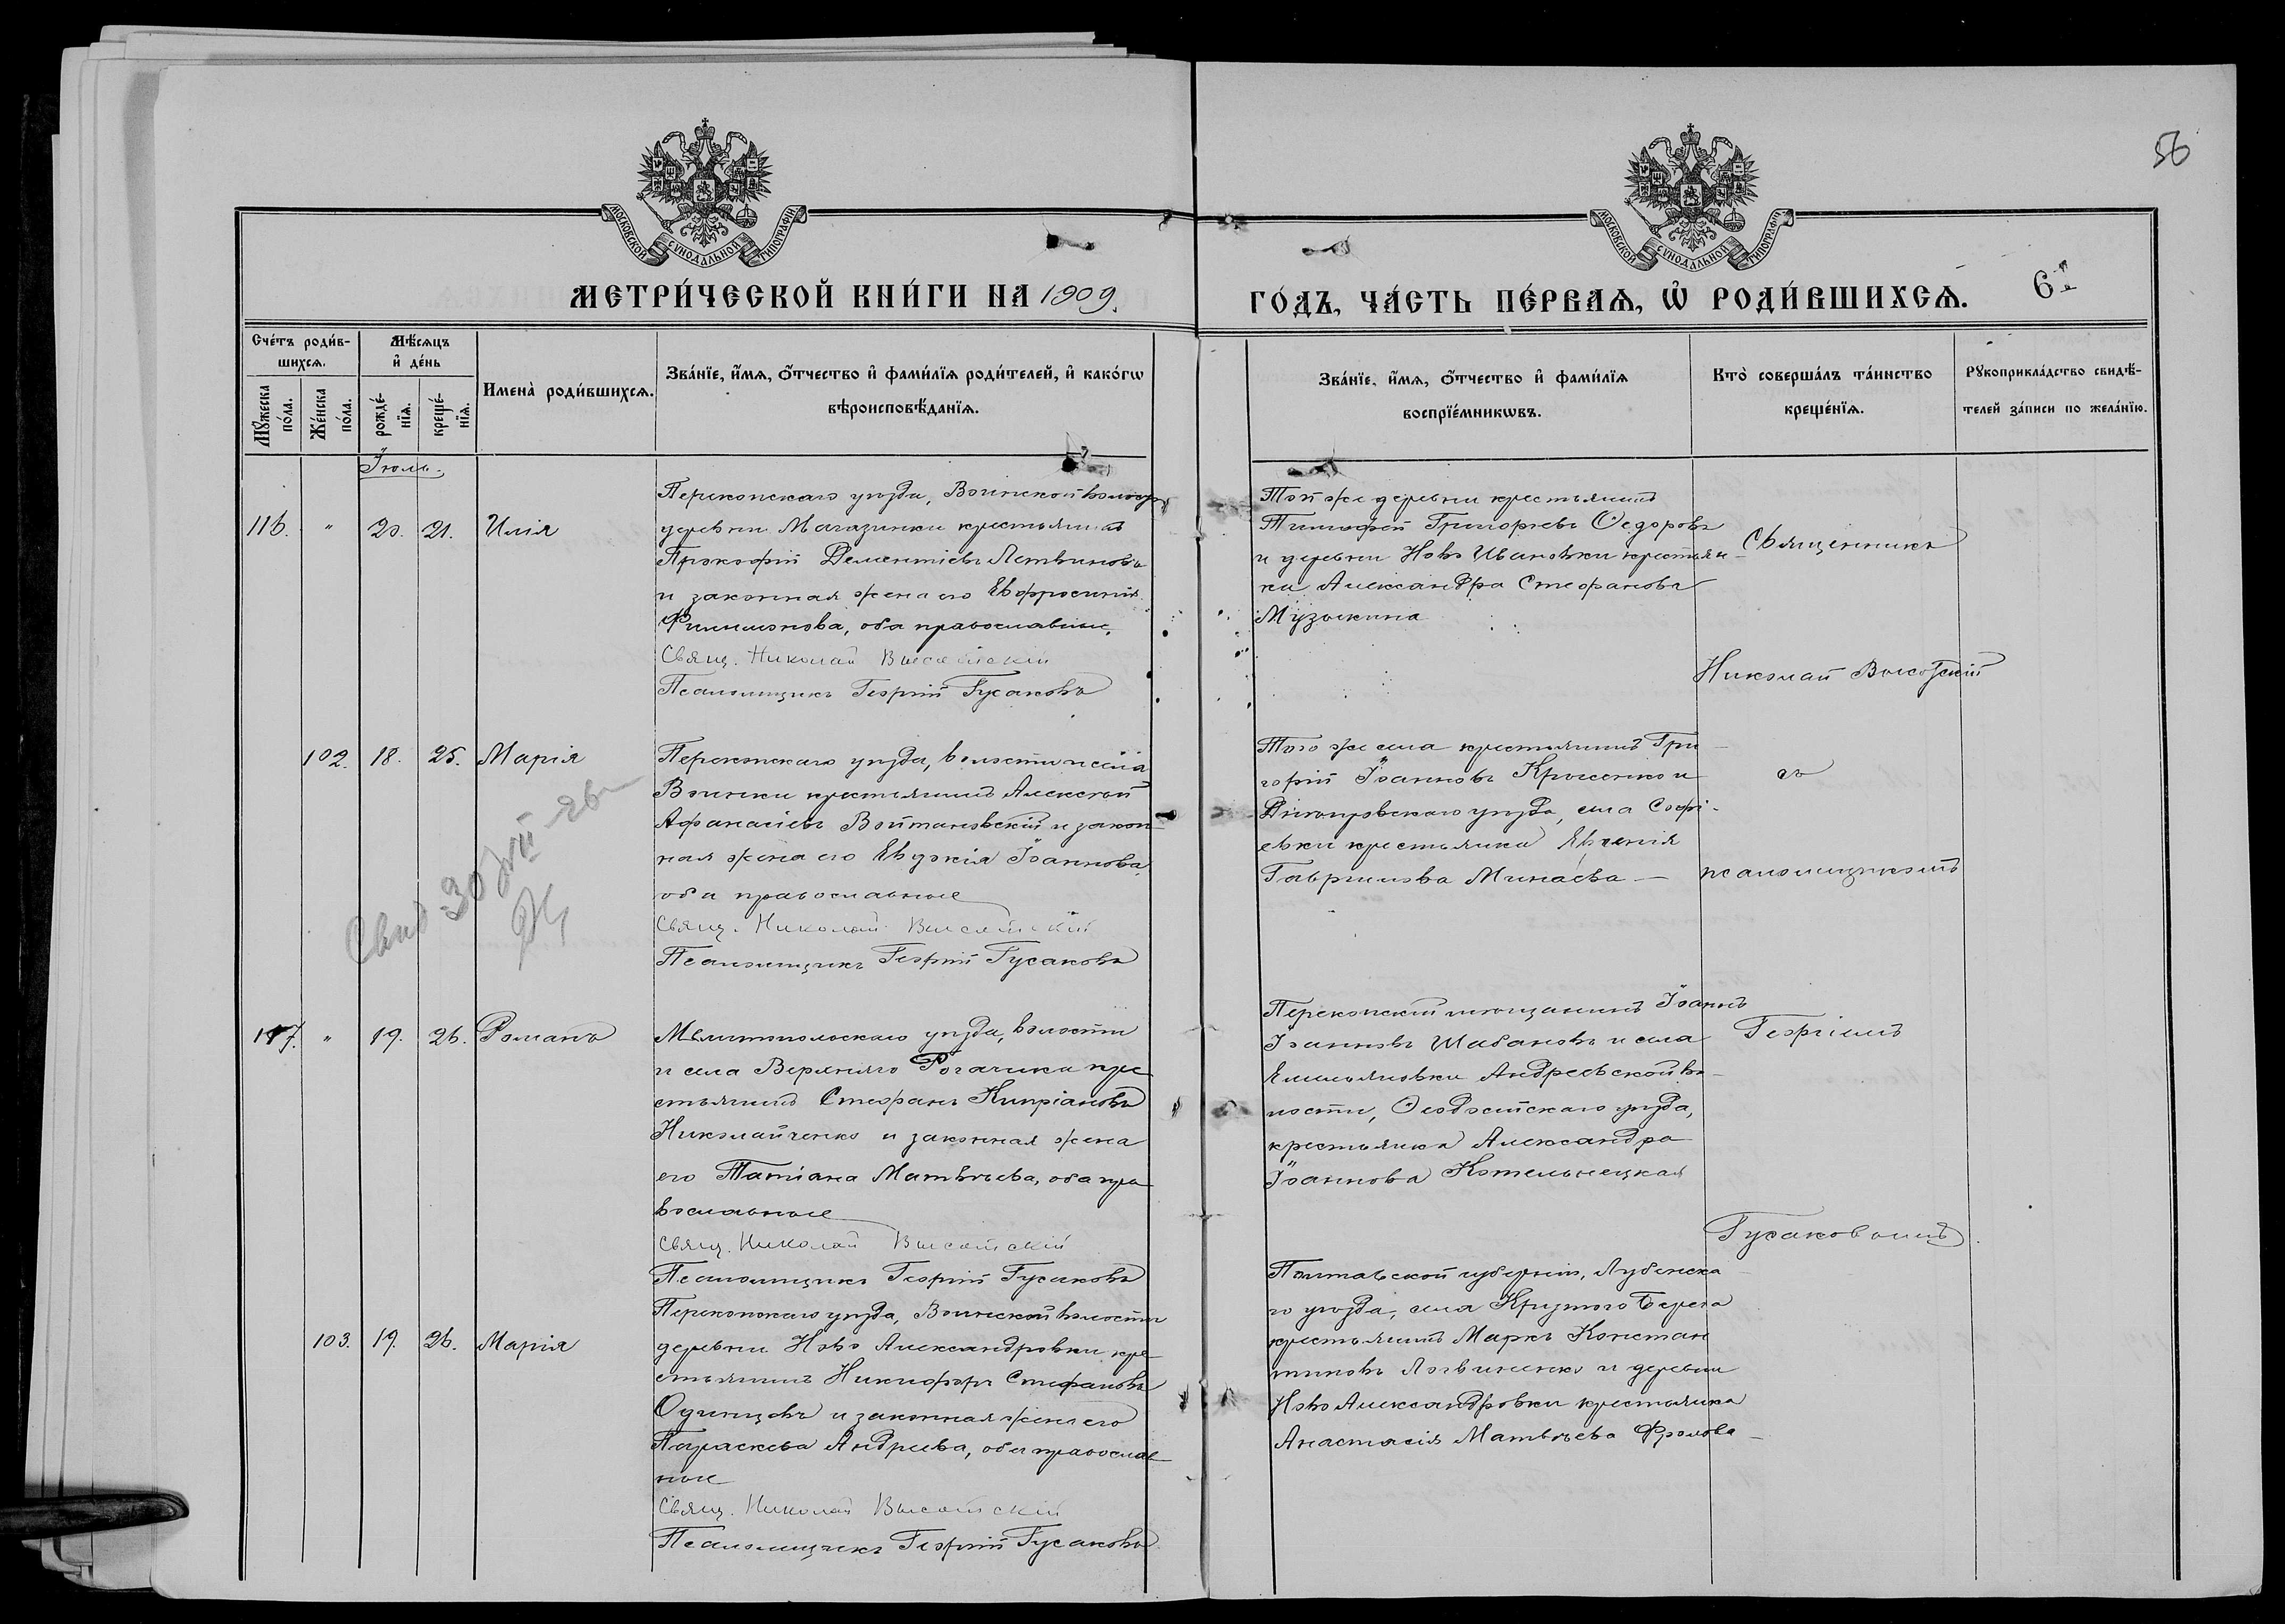 56
МОСКОВСКОЙ СѴНОДАЛЬНОЙ ТИПОГРАФІИ
МОСКОВСКОЙ СѴНОДАЛЬНОЙ ТИПОГРАФІИ
МЕТРИ́ЧЕСКОЙ КНИ́ГИ НА 1909.
ГО́ДЪ, ЧА́СТЬ ПЕ́РВАѦ, Ѡ҆ РОДИ́ВШИХСѦ.
Сче́тъ роди́в-
шихсѧ.
Мꙋ́жеска
по́ла.
Же́нска
по́ла.
Мѣ́сѧцъ
и҆ де́нь
рожде́-
нїѧ.
креще́-
нїѧ.
Имена̀ роди́вшихсѧ.
Зва́нїе, и҆́мѧ, ѻ҆́тчество и҆ фами́лїѧ роди́телей, и҆ како́гѡ
вѣроисповѣ́данїѧ.
Зва́нїе, и҆́мѧ, ѻ҆́тчество и҆ фами́лїѧ
воспрїе́мникѡвъ.
Кто̀ соверша́лъ та́инство
креще́нїѧ.
Рꙋкоприкла́дство свидѣ́-
телей за́писи по жела́нїю.
Іюль.
116. " 20. 21. Илія
Перекопскаго уѣзда, Воинской волости
деревни Магазинки крестьянинъ
Прокофій Дементіевъ Литвиновъ
и законная жена его Евфросинія
Филимонова, оба православные.
Свящ. Николай Высотскій
Псаломщикъ Георгій Гусаковъ
Той же деревни крестьянинъ
Тимофей Григорьевъ Ѳедоровъ
и деревни Ново Ивановки крестьян
ка Александра Стефанова
Музыкина
Священникъ
Николай Высотскій
102. 18. 25. Марія
Перекопскаго уѣзда, волости и села
Воинки крестьянинъ Алексѣй
Афанасіевъ Войтановскій и закон
ная жена его Евдокія Іоаннова,
оба православные
Свящ. Николай Высотскій
Псаломщикъ Георгій Гусаковъ
Того же села крестьянинъ Гри
горій Іоанновъ Крышенко и
Днѣпровскаго уѣзда, села Софі-
евки крестьянка Евгенія
Гавриилова Минаева
съ
псаломщикомъ
117. " 19. 26. Романъ
Мелитопольскаго уѣзда, волости
и села Верхняго Рогачика кре
стьянинъ Стефанъ Кипріановъ
Николайченко и законная жена
его Татіана Матвѣева, оба пра
вославные
Свящ. Николай Высотскій
Псаломщикъ Георгій Гусаковъ
Перекопскій мѣщанинъ Іоаннъ
Іоанновъ Шабановъ и села
Емельяновки Андреевской во-
лости, Ѳеодосійскаго уѣзда,
крестьянка Александра
Іоаннова Котельнецкая
Георгіемъ
Гусаковымъ.
103. 19. 26. Марія
Перекопскаго уѣзда, Воинской волости
деревни Ново Александровки кре
стьянинъ Никифоръ Стефановъ
Одинцевъ и законная жена его
Параскева Андреева, оба православ
ные
Свящ. Николай Высотскій
Псаломщикъ Георгій Гусаковъ
Полтавской губерніи, Лубенска
го уѣзда, села Крутого Берега
крестьянинъ Маркъ Констан
тиновъ Логвиненко и деревни
Ново Александровки крестьянка
Анастасія Матвѣева Фролова